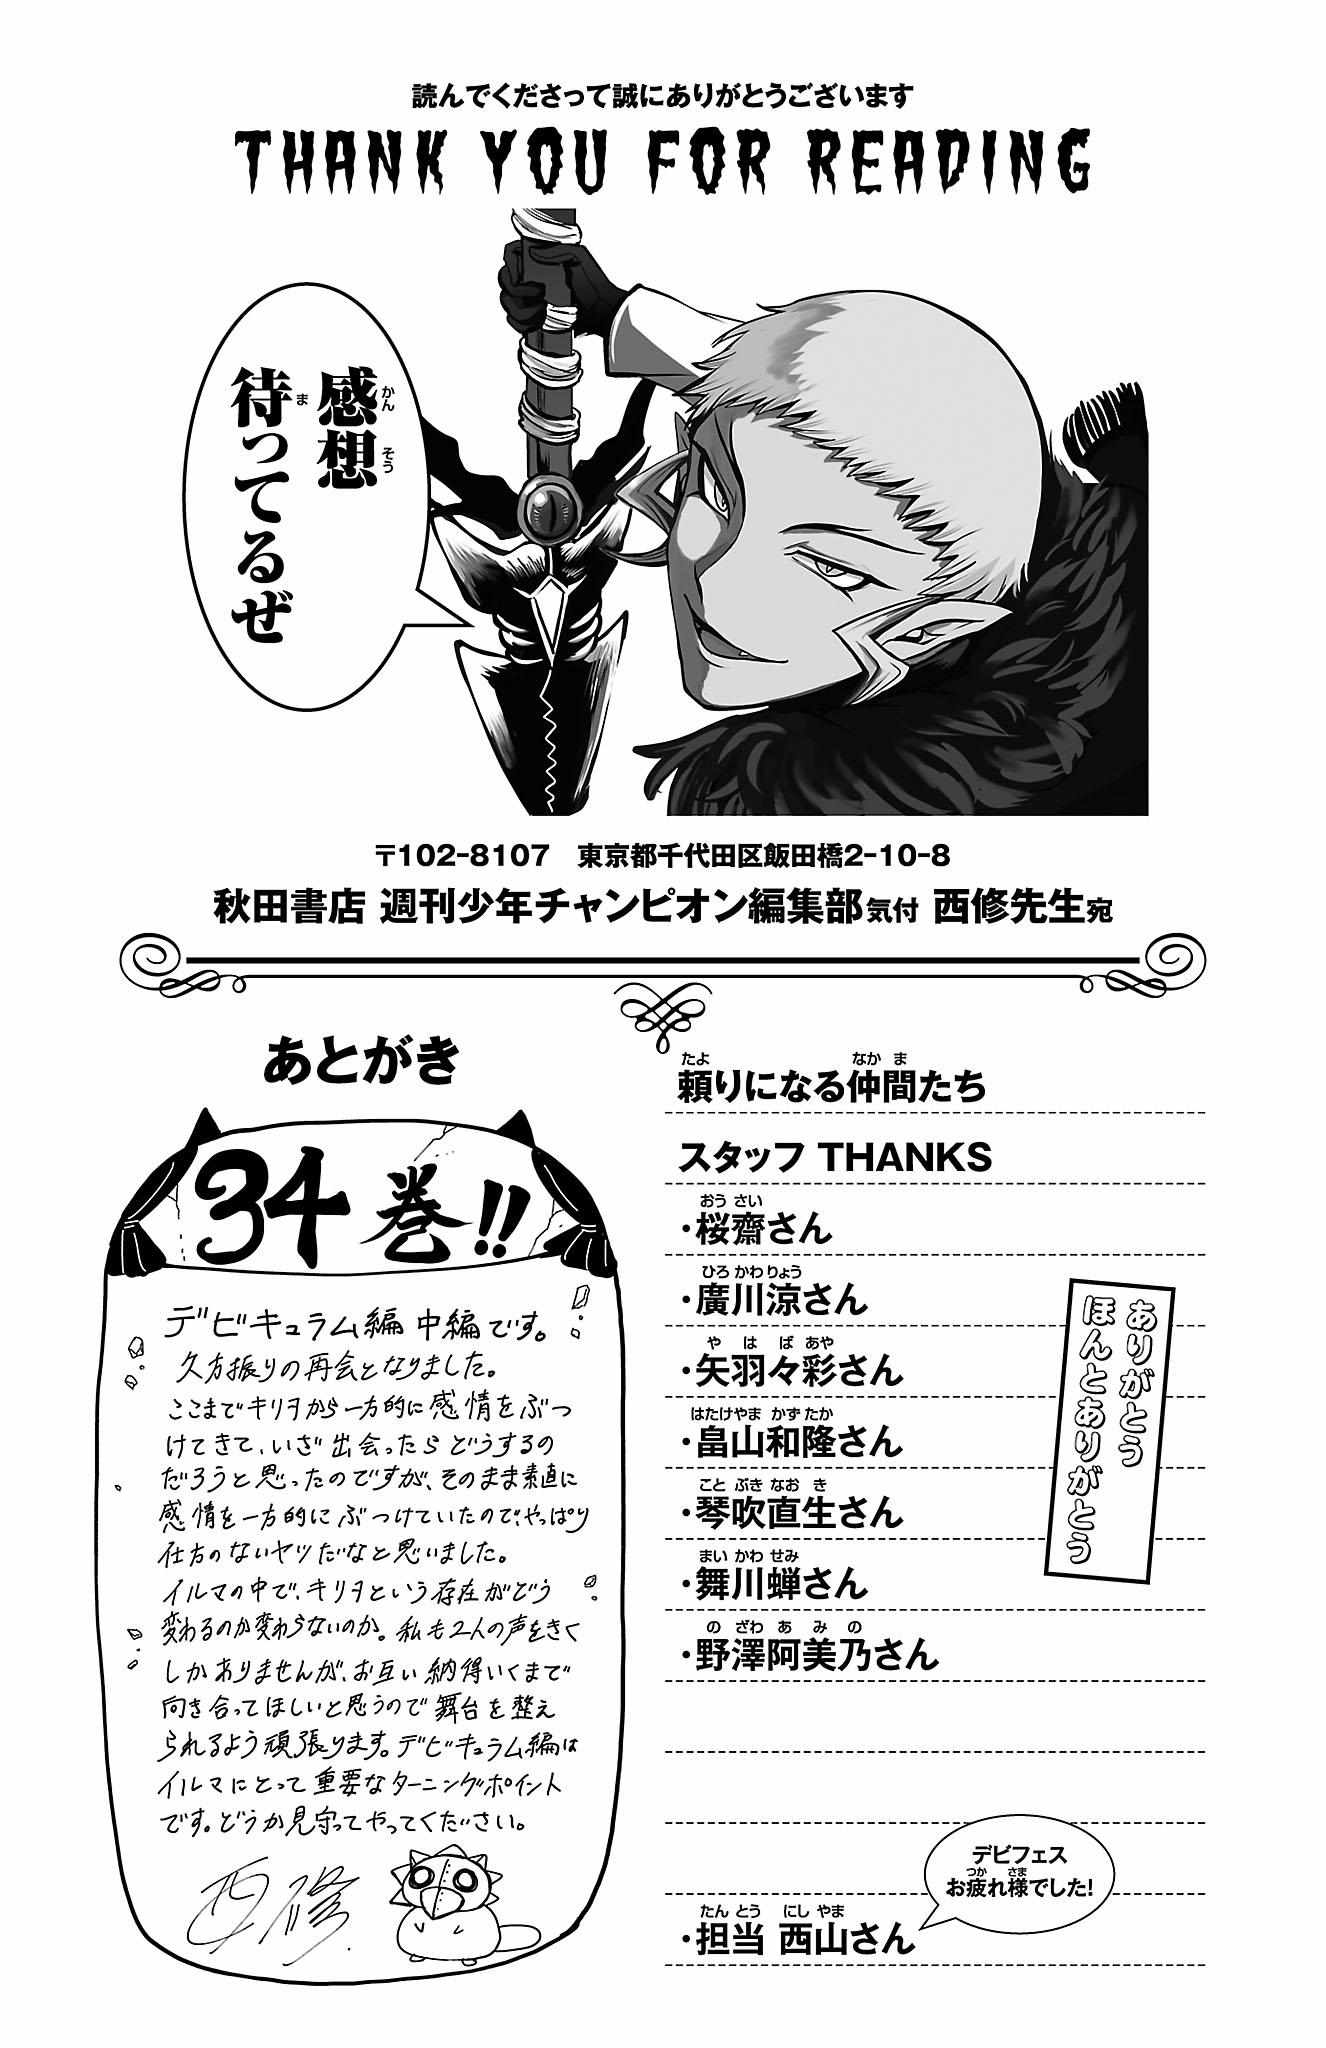 読んでくださって誠にありがとうございます
THANK YOU FOR READING
感想
待ってるぜ
〒102-8107 東京都千代田区飯田橋2-10-8
秋田書店 週刊少年チャンピオン編集部気付 西修先生宛
あとがき
34巻!!
デビキュラム編 中編です。
久方振りの再会となりました。
ここまでキリヲから一方的に感情をぶつ
けてきて、いざ出会ったらどうするの
だろうと思ったのですが、そのまま素直に
感情を一方的にぶつけていたので、やっぱり
仕方のないヤツだなと思いました。
イルマの中で、キリヲという存在がどう
変わるのか変わらないのか。私も2人の声をきく
しかありませんが、お互い納得いくまで
向き合ってほしいと思うので舞台を整え
られるよう頑張ります。デビキュラム編は
イルマにとって重要なターニングポイント
です。どうか見守ってやってください。
西修
頼りになる仲間たち
スタッフ THANKS
・桜齋さん
・廣川涼さん
・矢羽々彩さん
・畠山和隆さん
・琴吹直生さん
・舞川蝉さん
・野澤阿美乃さん
ありがとう
ほんとありがとう
デビフェス
お疲れ様でした!
・担当 西山さん